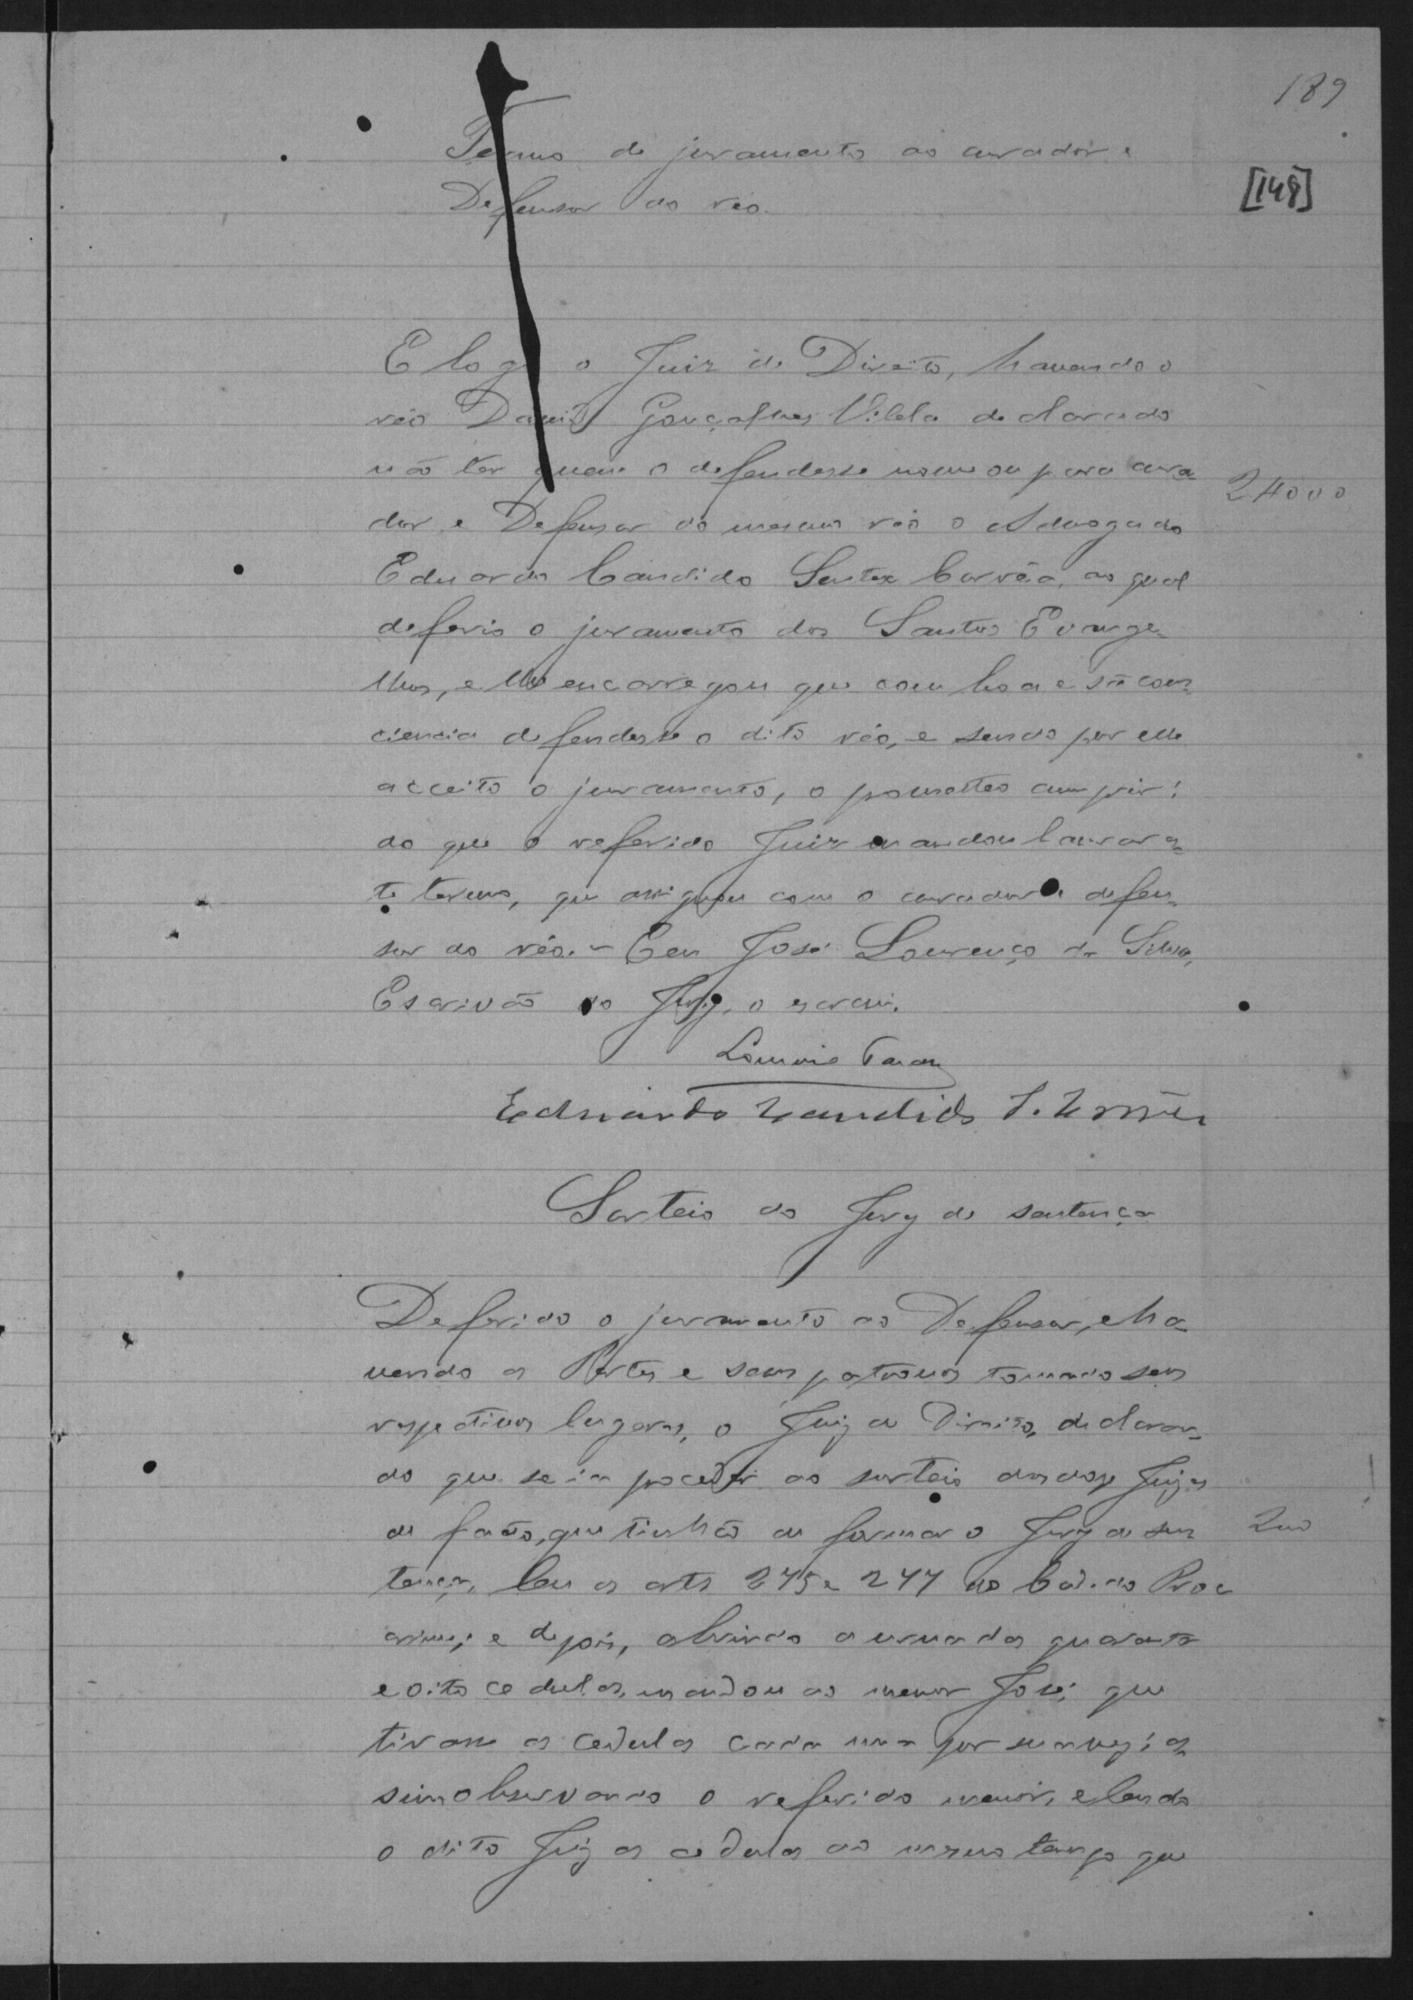 189
Termo de juramento ao curador e
[149]
Defensor do réo.
E logo o Juiz de Direito, havendo o
réo David Gonçalves Vilela declarado
não ter quem o defendesse nomeou para cura-
24000
dor e Defensor do mesmo réo o Advogado
Eduardo Candido Corrêa, ao qual
deferio o juramento dos Santos Evange-
lhos, e lhe encarregou que com boa e sã cons-
ciencia defendesse o dito réo, e sendo por elle
acceito o juramento, o prometteo cumprir;
do que o referido Juiz mandou lavrar es-
te termo, que assignou com o curador e defen-
sor do réo. - Eu José Lourenço da Silva,
Escrivão do Jury, o escrevi.
Eduardo Candido S. Corrêa
Sorteio do Jury de sentença
Deferido o juramento ao Defensor, e ha-
vendo as Partes e seus patronos tomado seus
respectivos lugares, o Juiz de Direito, declaran-
do que se ia proceder ao sorteio dos doze Juizes
de facto, que tinhão de formar o Jury de sen-
200
tença, leu os arts 275 e 277 do Cod. do Proc
crime; e depois, abrindo a urna das quarenta
e oito cedulas, mandou ao menor José, que
tirasse as cedulas cada uma por sua vez; as-
sim observando o referido menor, e lendo
o dito Juiz as cedulas ao mesmo tempo que